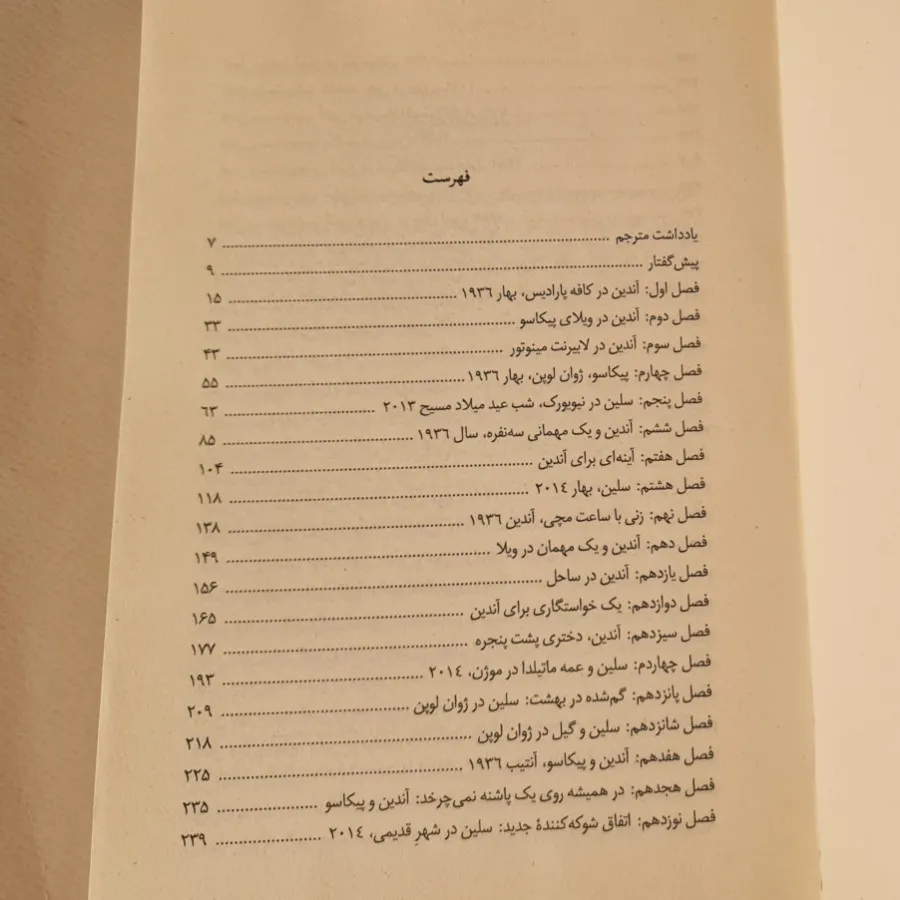 فهرست
یادداشت مترجم ........ ۷
پیش‌گفتار ........ ۹
فصل اول: آندین در کافه پارادیس، بهار ۱۹۳٦ ........ ۱۵
فصل دوم: آندین در ویلای پیکاسو ........ ۳۳
فصل سوم: آندین در لابیرنت مینوتور ........ ۴۳
فصل چهارم: پیکاسو، ژوان لوپن، بهار ۱۹۳٦ ........ ۵۵
فصل پنجم: سلین در نیویورک، شب عید میلاد مسیح ۲۰۱۳ ........ ۶۳
فصل ششم: آندین و یک مهمانی سه‌نفره، سال ۱۹۳٦ ........ ۸۵
فصل هفتم: آینه‌ای برای آندین ........ ۱۰۴
فصل هشتم: سلین، بهار ۲۰۱٤ ........ ۱۱۸
فصل نهم: زنی با ساعت مچی، آندین ۱۹۳٦ ........ ۱۳۸
فصل دهم: آندین و یک مهمان در ویلا ........ ۱۴۹
فصل یازدهم: آندین در ساحل ........ ۱۵۶
فصل دوازدهم: یک خواستگاری برای آندین ........ ۱۶۵
فصل سیزدهم: آندین، دختری پشت پنجره ........ ۱۷۷
فصل چهاردم: سلین و عمه ماتیلدا در موژن، ۲۰۱٤ ........ ۱۹۳
فصل پانزدهم: گم‌شده در بهشت: سلین در ژوان لوپن ........ ۲۰۹
فصل شانزدهم: سلین و گیل در ژوان لوپن ........ ۲۱۸
فصل هفدهم: آندین و پیکاسو، آنتیب ۱۹۳٦ ........ ۲۲۵
فصل هجدهم: در همیشه روی یک پاشنه نمی‌چرخد: آندین و پیکاسو ........ ۲۳۵
فصل نوزدهم: اتفاق شوکه‌کنندهٔ جدید: سلین در شهرِ قدیمی، ۲۰۱٤ ........ ۲۳۹